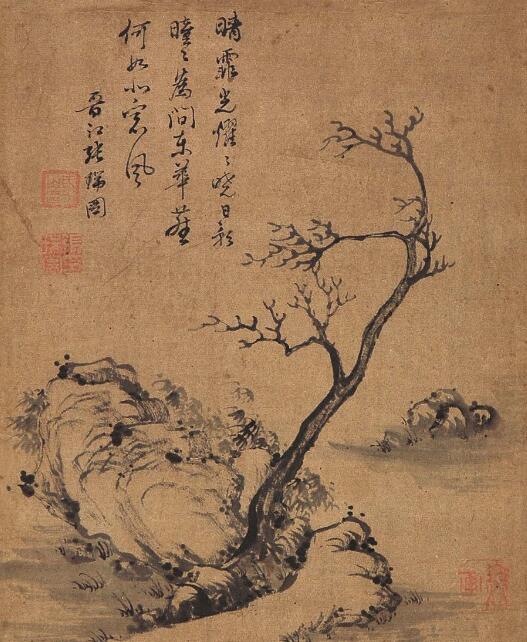 晴霏光燿々曉日影
曈々為問東華塵
何如北窓風
晉江張瑞圖